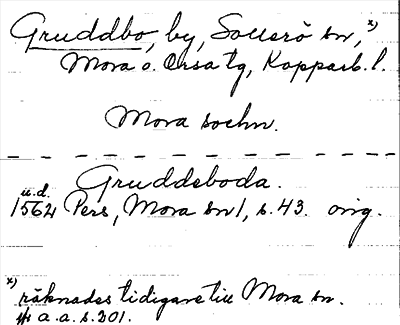 Gruddbo, by, Sollerö sn, x)
Mora o. Orsa tg, Kopparb. l.
Mora sochn.
Gruddeboda.
u.d.
1564 Pers, Mora sn 1, s. 43. orig.
x) räknades tidigare till Mora sn.
a. a. s. 201.